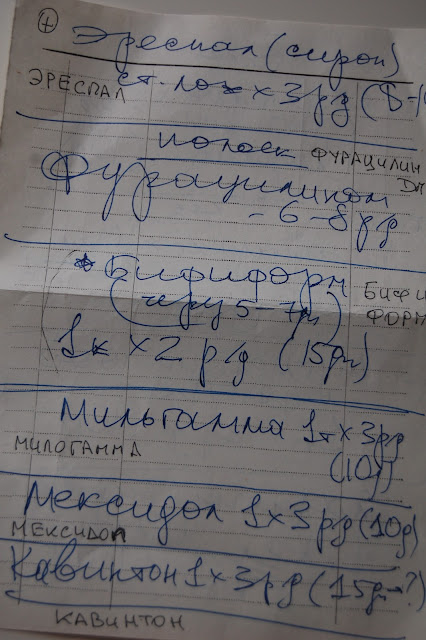 + Эреспал (сироп)
ЭРЕСПАЛ
ст. лож х 3 рд (8-1
полоск
ФУРАЦИЛИН
Фурацилином
- 6 - 8 рд
* Бифиформ
БИФИ
ФОРМ
(через 5-7 дн)
1к х 2 рд (15дн)
Мильгамма 1т х 3рд
(10д)
МИЛОГАММА
Мексидол 1 х 3 рд (10д)
МЕКСИДОЛ
Кавинтон 1 х 3 рд (15дн-?)
КАВИНТОН